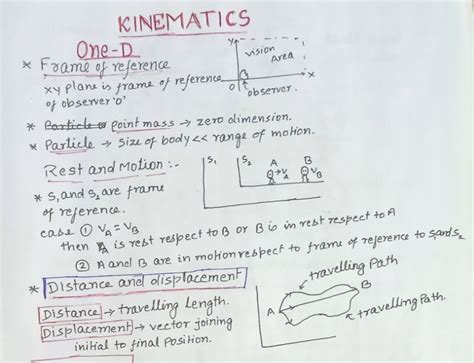 KINEMATICS
One-D
* Frame of reference
xy plane is frame of reference
of observer 'O'
y
vision
Area
x
O
observer.
* Particle or point mass → zero dimension.
* Particle → size of body << range of motion.
Rest and Motion :-
S1
S2
A
VA
B
VB
* S1 and S2 are frame
of reference.
case ① VA = VB
then A is rest respect to B or B is in rest respect to A
② A and B are in motion respect to frame of reference to S1 and S2
* Distance and displacement
Distance → travelling Length.
Displacement → vector joining
initial to final position.
travelling Path
A
B
travelling Path.